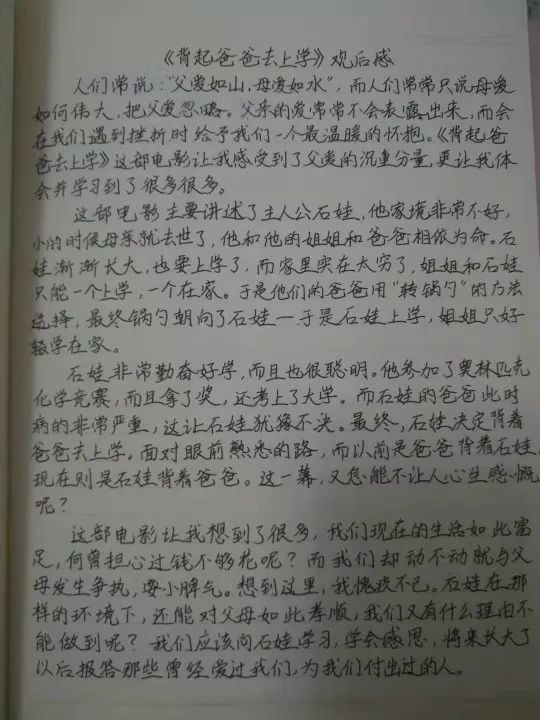 《背起爸爸去上学》观后感
人们常说：“父爱如山，母爱如水”，而人们常常只说母爱
如何伟大，把父爱忽略。父亲的爱常常不会表露出来，而会
在我们遇到挫折时给予我们一个最温暖的怀抱。《背起爸
爸去上学》这部电影让我感受到了父爱的沉重分量，更让我体
会并学习到了很多很多。
这部电影主要讲述了主人公石娃，他家境非常不好，
小的时候母亲就去世了，他和他的姐姐和爸爸相依为命。石
娃渐渐长大，也要上学了，而家里实在太穷了，姐姐和石娃
只能一个上学，一个在家。于是他们的爸爸用“转锅勺”的方法
选择，最终锅勺朝向了石娃—于是石娃上学，姐姐只好
辍学在家。
石娃非常勤奋好学，而且也很聪明。他参加了奥林匹克
化学竞赛，而且拿了奖，还考上了大学。而石娃的爸爸此时
病的非常严重，这让石娃犹豫不决。最终，石娃决定背着
爸爸去上学。面对眼前熟悉的路，而以前是爸爸背着石娃，
现在则是石娃背着爸爸。这一幕，又怎能不让人心生感慨
呢？
这部电影让我想到了很多，我们现在的生活如此富
足，何曾担心过钱不够花呢？而我们却动不动就与父
母发生争执，耍小脾气。想到这里，我愧疚不已。石娃在那
样的环境下，还能对父母如此孝顺，我们又有什么理由不
能做到呢？我们应该向石娃学习，学会感恩，将来长大了
以后报答那些曾经爱过我们，为我们付出过的人。